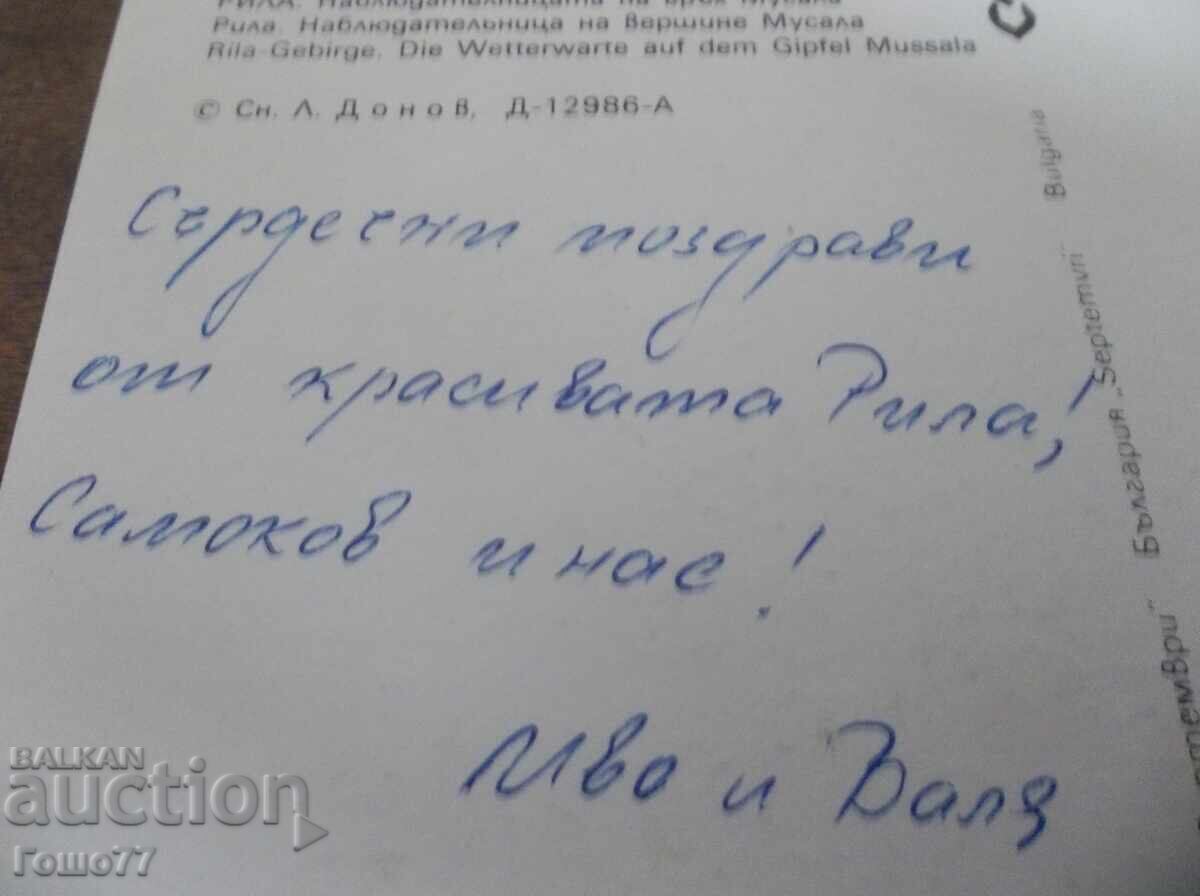 РИЛА. Наблюдателницата на връх Мусала
Рила. Наблюдательница на вершине Мусала
Rila-Gebirge, Die Wetterwarte auf dem Gipfel Mussala
© Сн. Л. Донов, Д-12986-А
Сърдечни поздрави
от красивата Рила,
Самоков и нас!
Иво и Валя
България „Septemvri" Bulgaria
BALKAN
auction
Гошо77